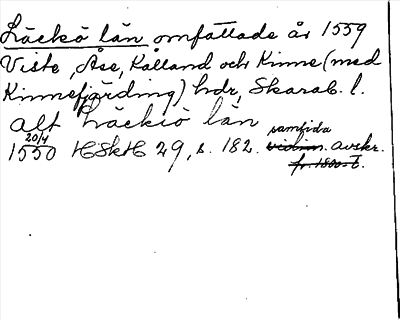 Läckö län omfattade år 1559
Viste, Åse, Kålland och Kinne (med
Kinnefjärding) hdr, Skarab. l.
alt Läckiö län
20/4
1550 HSkH 29, s. 182. samtida avskr.
fr. 1800-t.